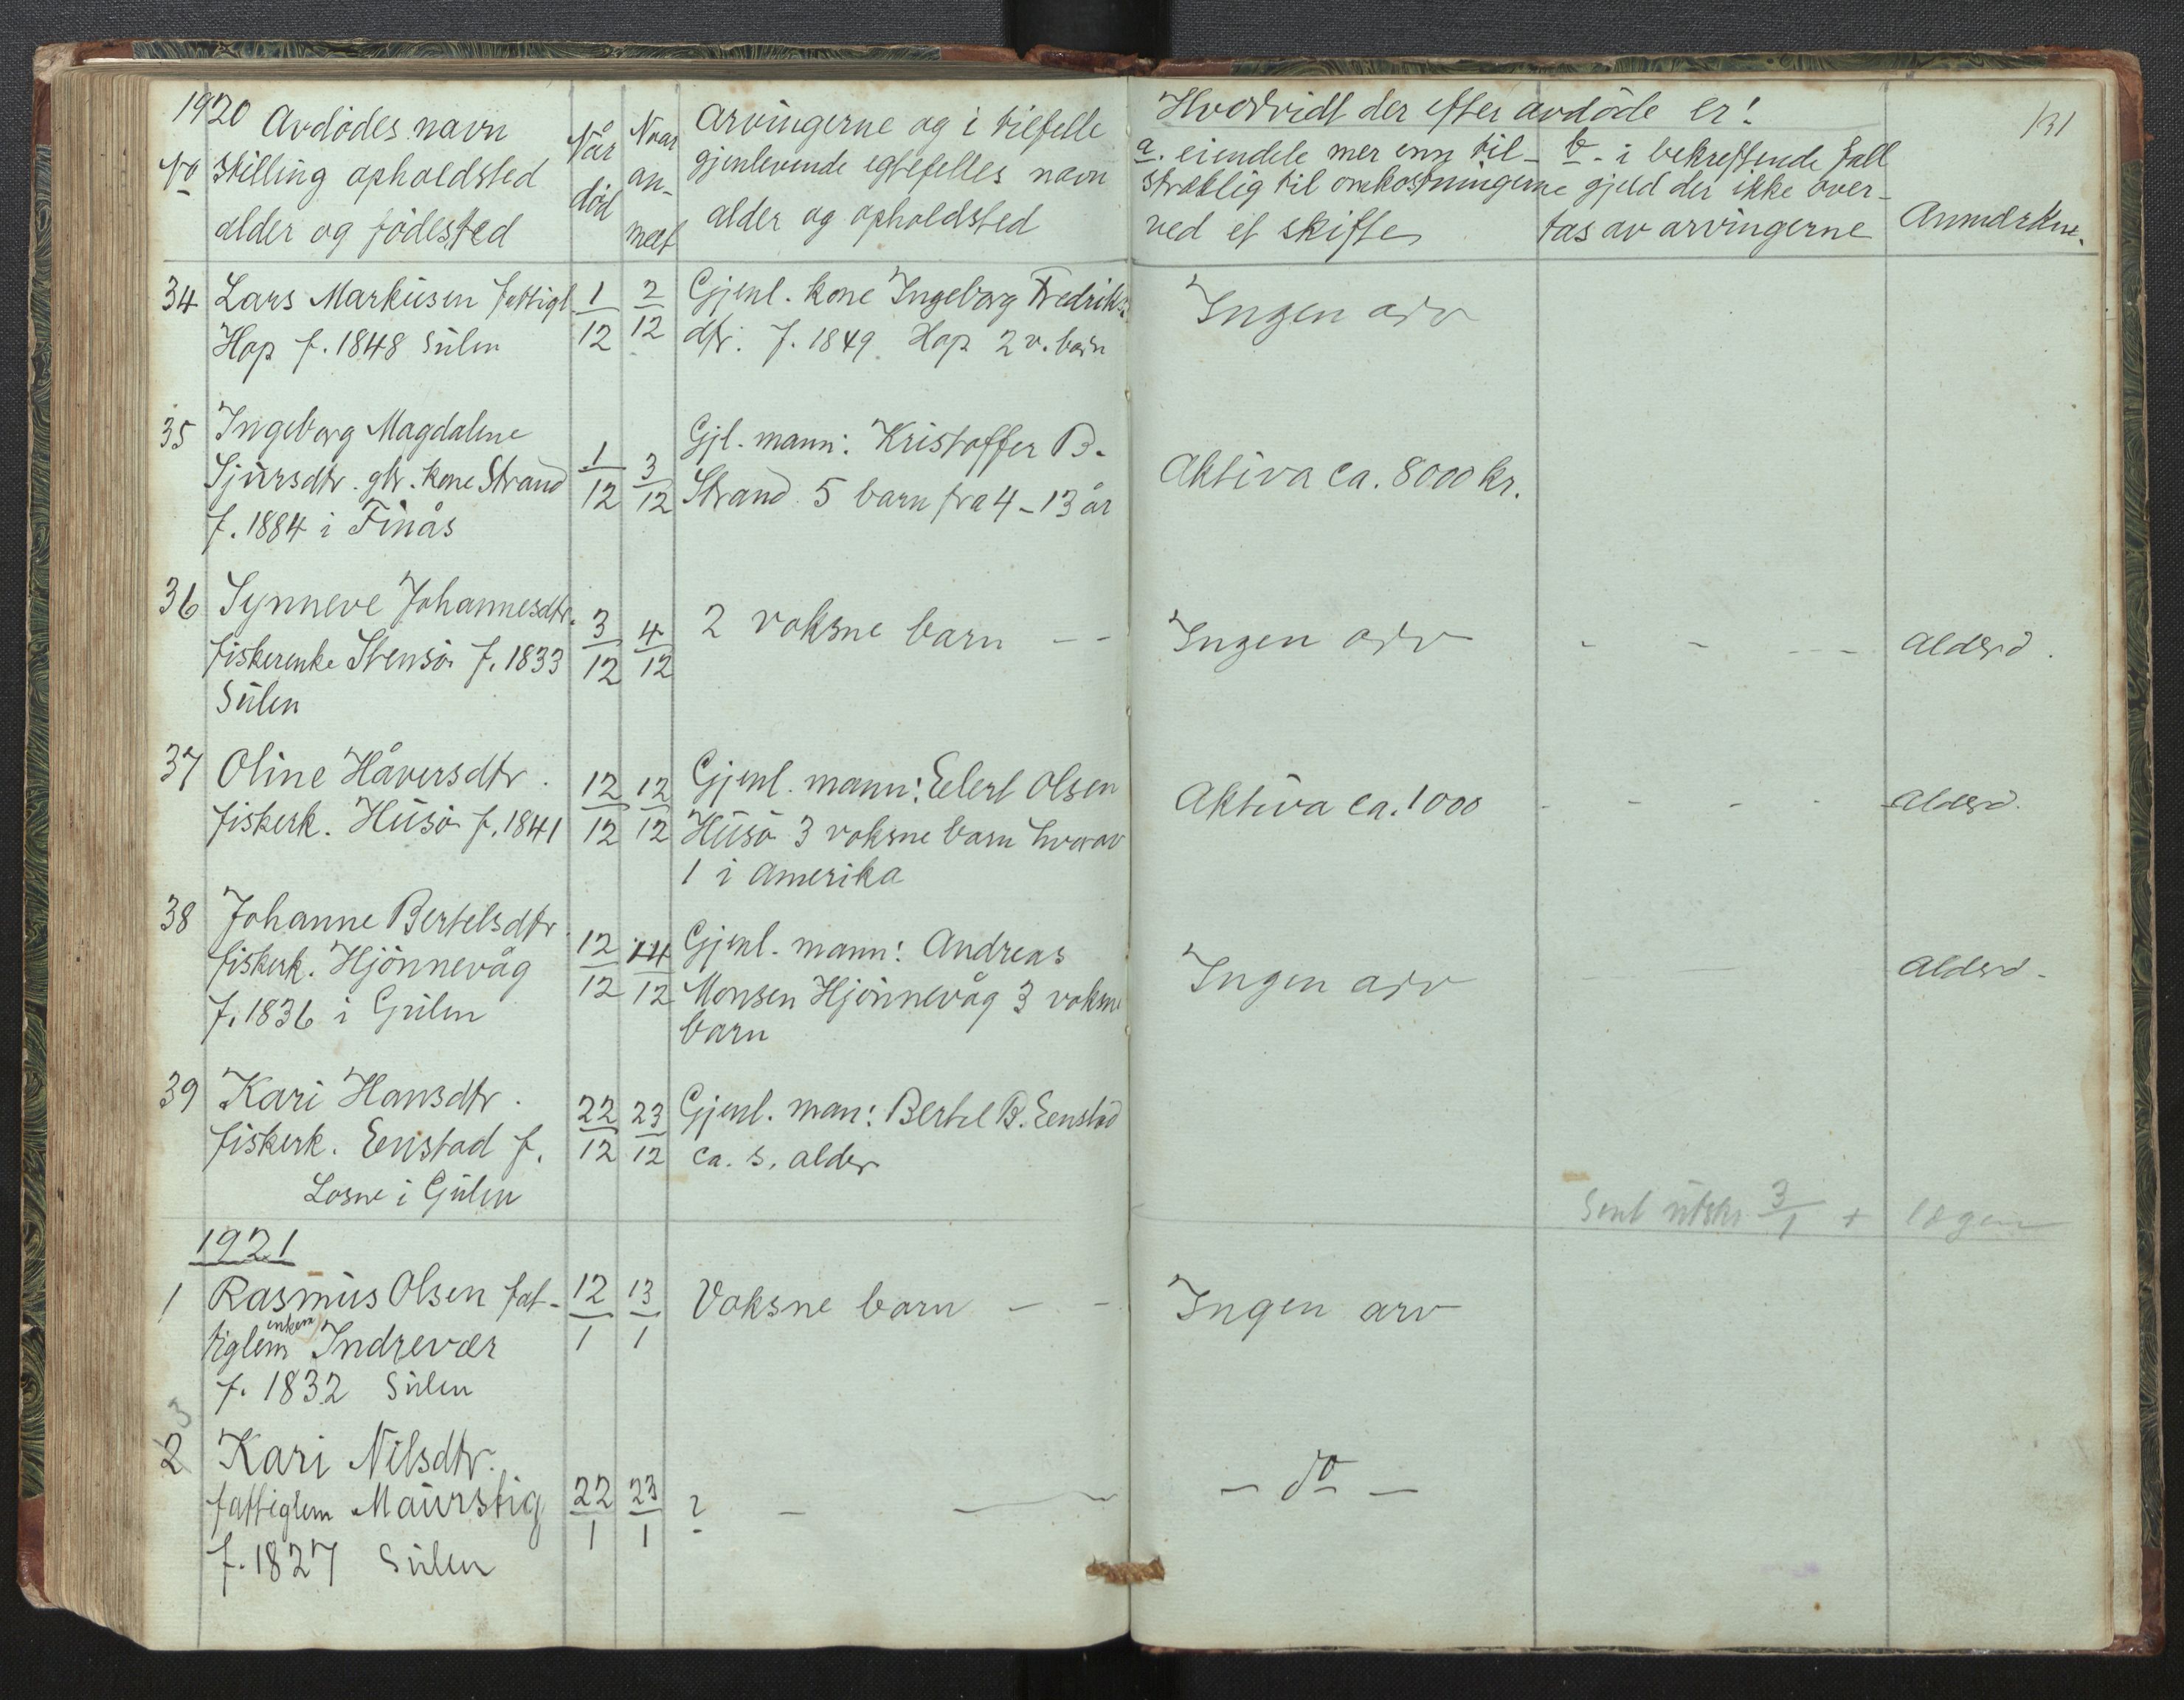 1920 Avdödes navn
No stilling opholdsted
alder og födested
Når
död
Naar
an-
melt
Arvingerne og i tilfelle
gjenlevende egtefelles navn
alder og opholdsted
Hvorvidt der efter avdöde er:
a. eiendele mer enn til-
stræklig til omkostningerne
ved et skifte
b. i bekreftende fall
gjeld der ikke over-
tas av arvingerne
Anmerkn.
131
34 Lars Markusen fattigl. 1/12 2/12 Gjenl. kone Ingeborg Fredriks- Ingen arv
Hop f. 1848 Sulen dtr. f. 1849 Hop 2 v. barn
35 Ingeborg Magdalene
Sjursdtr. gbr. kone Strand 1/12 3/12 Gjl. mann: Kristoffer B. Aktiva ca. 8000 kr.
f. 1884 i Finås Strand 5 barn fra 4-13 år
36 Synneve Johannesdtr. 3/12 4/12 2 voksne barn - - Ingen arv - - - - alderd.
fiskerenke Stensö f. 1833
Sulen
37 Oline Håversdtr. 12/12 12/12 Gjenl. mann: Eelert Olsen Aktiva ca. 1000 - - - - alderd.
fiskerk. Husö f. 1841 Husö 3 voksne barn hvorav
1 i Amerika
38 Johanne Bertelsdtr. 12/12 14/12 Gjenl. mann: Andreas Ingen arv alderd.
fiskerk. Hjönnevåg Monsen Hjönnevåg 3 voksne
f. 1836 i Gulen barn
39 Kari Hansdtr. 22/12 23/12 Gjenl. man: Bertel B. Eenstad
fiskerk. Eenstad f. ca. s. alder
Losne i Gulen
Sent utskr 3/1 + lægen
1921
1 Rasmus Olsen fat- 12/1 13/1 Voksne barn - - Ingen arv
tiglem enkem Indrevær
f. 1832 Sulen
3
2 Kari Nilsdtr.
fattiglem Maurstig 22/1 23/1 ? - - - do -
f. 1827 Sulen